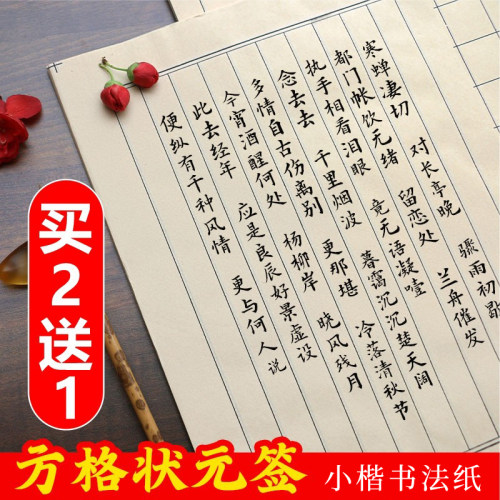 寒蝉凄切 对长亭晚 骤雨初歇
都门帐饮无绪 留恋处 兰舟催发
执手相看泪眼 竟无语凝噎
念去去 千里烟波 暮霭沉沉楚天阔
多情自古伤离别 更那堪 冷落清秋节
今宵酒醒何处 杨柳岸 晓风残月
此去经年 应是良辰好景虚设
便纵有千种风情 更与何人说
买2送1
方格状元签
小楷书法纸